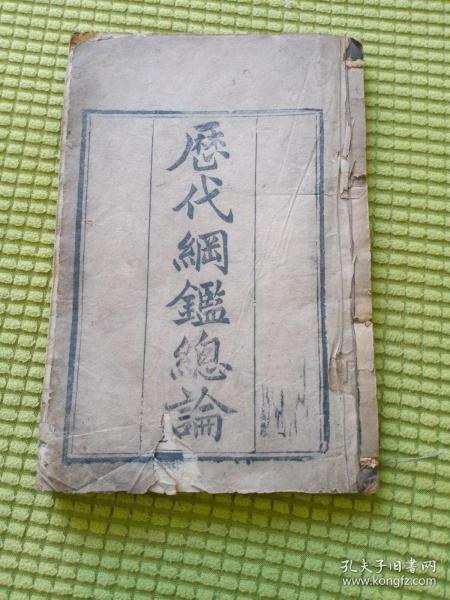 歷代綱鑑總論
孔夫子旧书网
www.kongfz.com